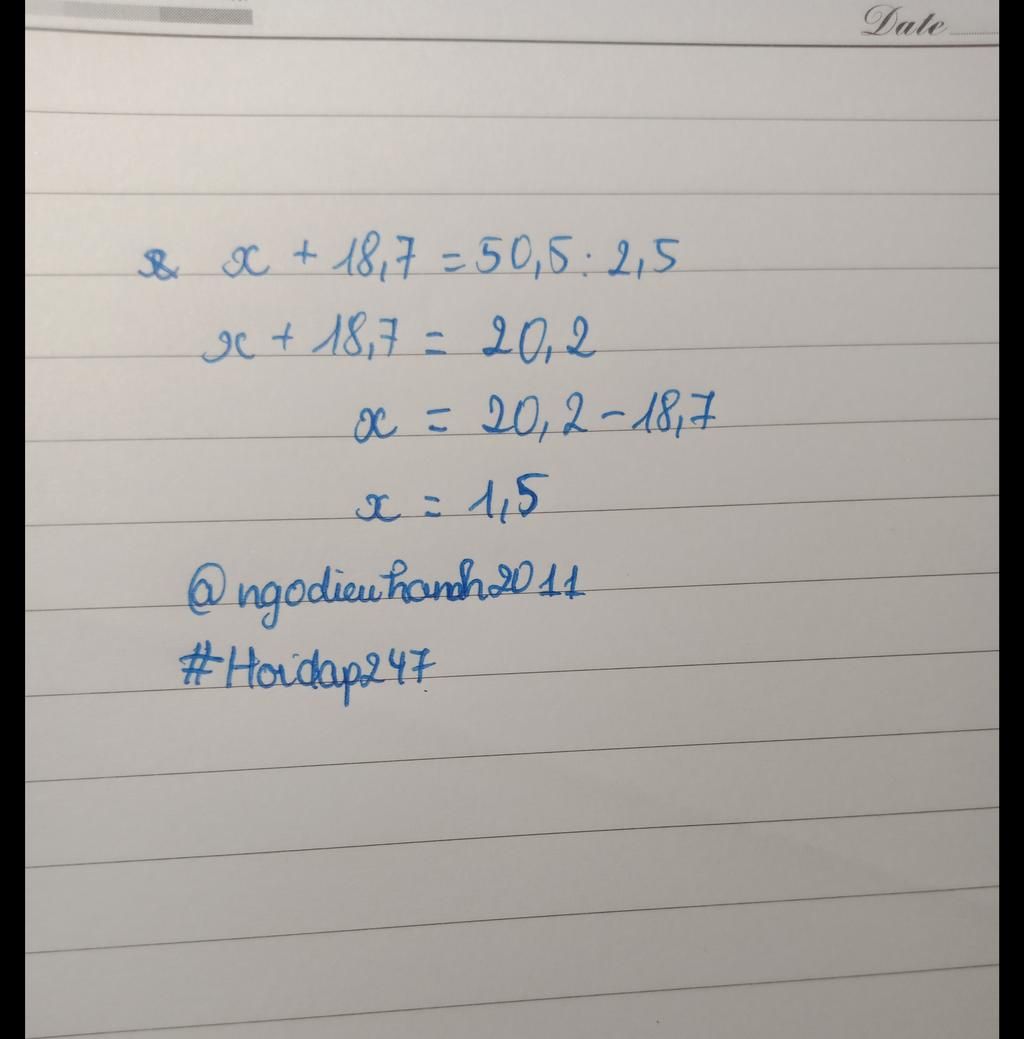 Date
x + 18,7 = 50,5 : 2,5
x + 18,7 = 20,2
x = 20,2 - 18,7
x = 1,5
@ngodieuhanh2011
#Hoidap247